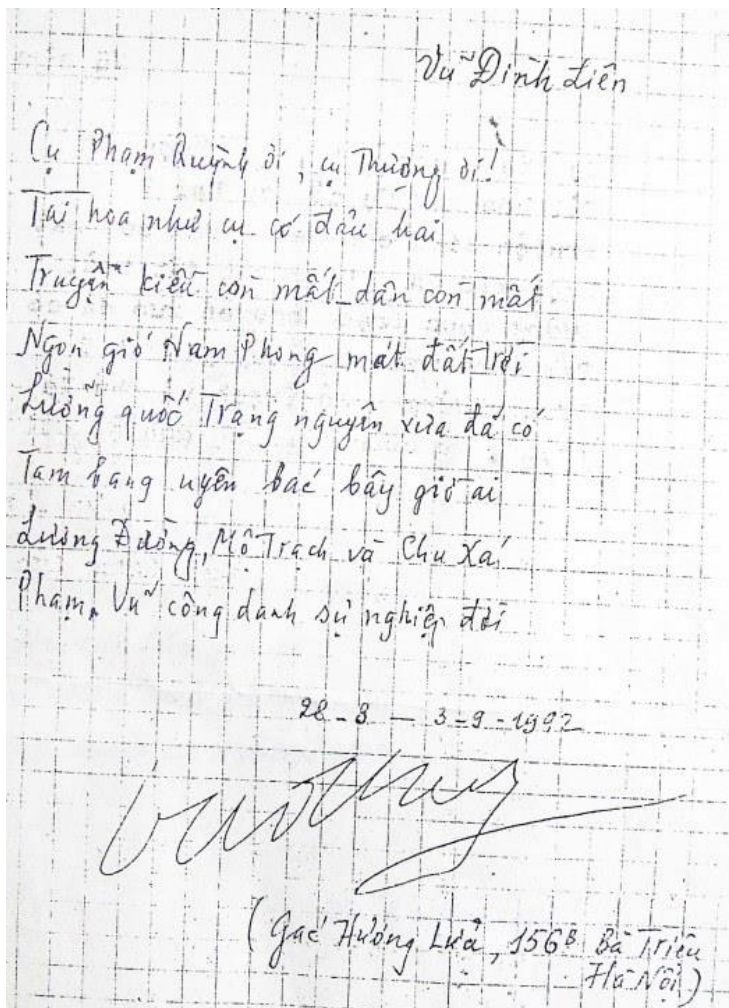 Vũ Đình Liên
Cụ Phạm Quỳnh ơi, cụ Thượng ơi!
Tài hoa như cụ có đâu hai
Truyện kiều còn mất dân còn mất
Ngọn gió Nam Phong mát đất trời
Lưỡng quốc Trạng nguyên xưa đã có
Tam bang uyên bác bây giờ ai
Lương Đường, Mộ Trạch và Châu Xá
Phạm, Vũ công danh sự nghiệp đời
28-8 — 3-9-1992
(Gác Hương Lửa, 156B Bà Triệu
Hà Nội)